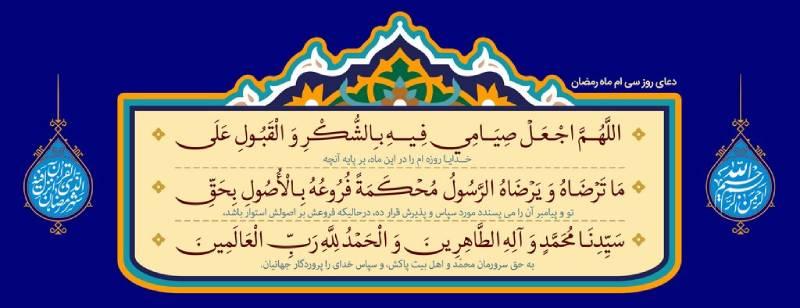 دعای روز سی ام ماه رمضان
اللَّهُمَّ اجْعَلْ صِيَامِي فِيهِ بِالشُّكْرِ وَ الْقَبُولِ عَلَى
خدایا روزه ام را در این ماه، بر پایه آنچه
مَا تَرْضَاهُ وَ يَرْضَاهُ الرَّسُولُ مُحْكَمَةً فُرُوعُهُ بِالْأُصُولِ بِحَقِّ
تو و پیامبر آن را می پسندد مورد سپاس و پذیرش قرار ده، درحالیکه فروعش بر اصولش استوار باشد،
سَيِّدِنَا مُحَمَّدٍ وَ آلِهِ الطَّاهِرِينَ وَ الْحَمْدُ لِلَّهِ رَبِّ الْعَالَمِينَ
به حق سرورمان محمد و اهل بیت پاکش، و سپاس خدای را پروردگار جهانیان.
بسم الله الرحمن الرحيم
شهر رمضان الذي أنزل فيه القرآن